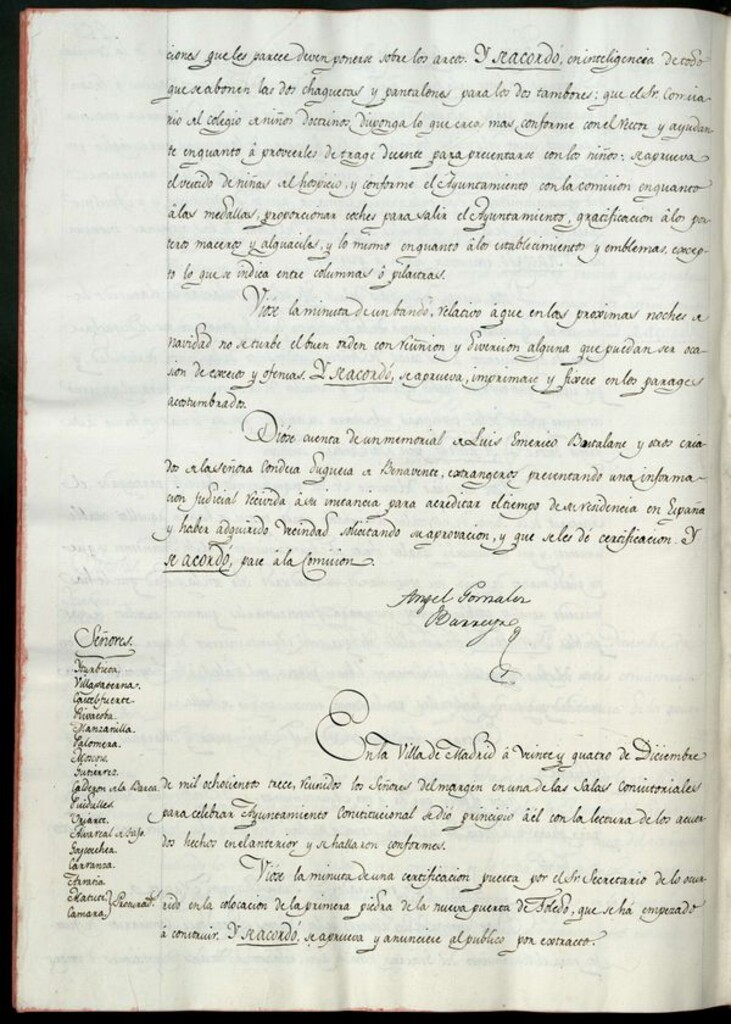 ciones que les parece deven ponerse sobre los arcos. Y se acordó, en inteligencia de todo
que se abonen las dos chaquetas y pantalones para los dos tambores: que el Sr. Comisa-
rio al colegio de niños doctrinos, disponga lo que crea mas conforme con el Rector y ayudan-
te en quanto á proveerles de trage decente para presentarse con los niños: se aprueva
el vestido de niñas del hospicio, y conforme el Ayuntamiento con la comision en quanto
á las medallas, proporcionar coches para salir el Ayuntamiento, gratificacion á los por-
teros maceros y alguaciles, y lo mismo en quanto á los establecimientos y emblemas, excep-
to lo que se indica entre columnas ó pilastras.
Vióse la minuta de un bando, relativo á que en las proximas noches de
navidad no se turbe el buen orden con reunion y diversion alguna que puedan ser oca-
sion de excesos y ofensas. Y se acordó, se aprueva, imprimase y fixese en los parages
acostumbrados.
Dióse cuenta de un memorial de Luis Emerico Butalane y otros cria-
dos de la señora Condesa Duquesa de Benavente, extrangeros presentando una informa-
cion judicial recivida á su instancia para acreditar el tiempo de su residencia en España
y haber adquirido vecindad solicitando su aprovacion, y que se les dé certificacion. Y
se acordó, pase á la Comision.
Angel Gonzalez
Barreyro
Señores.
Yturbieta
Villapaterna.
Castelfuerte.
Rivacoba.
Manzanilla.
Palomera.
Moscoso.
Gutierrez.
Calderon de la Barca
Quidulles.
Uriarte.
Alvarcal de Bajo.
Goycochea.
Carranza.
Arratia
Matute
Camara
Procurads.
En la Villa de Madrid á veinte y quatro de Diciembre
de mil ochocientos trece, reunidos los Señores del margen en una de las Salas Consistoriales
para celebrar Ayuntamiento Constitucional se dio principio á él con la lectura de los acuer-
dos hechos en el anterior y se hallaron conformes.
Vióse la minuta de una certificacion puesta por el Sr. Secretario de lo ocur-
rido en la colocacion de la primera piedra de la nueva puerta de Toledo, que se há empezado
á construir. Y se acordó, se aprueva y anunciese al publico por extracto.